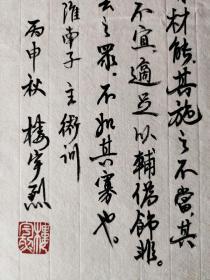 材能,其施之不當,其
不宜,適足以輔偽飾非。
之眾,不如其寡也。
淮南子 主術訓
丙申秋 樓宇烈